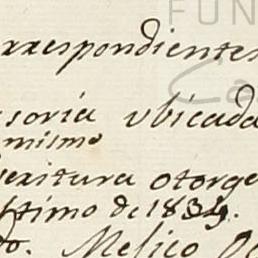 FUN
Ca
rrespondientes
soria ubicada
mismo
critura otorga
ptimo de 1834.
do. Mexico Oc